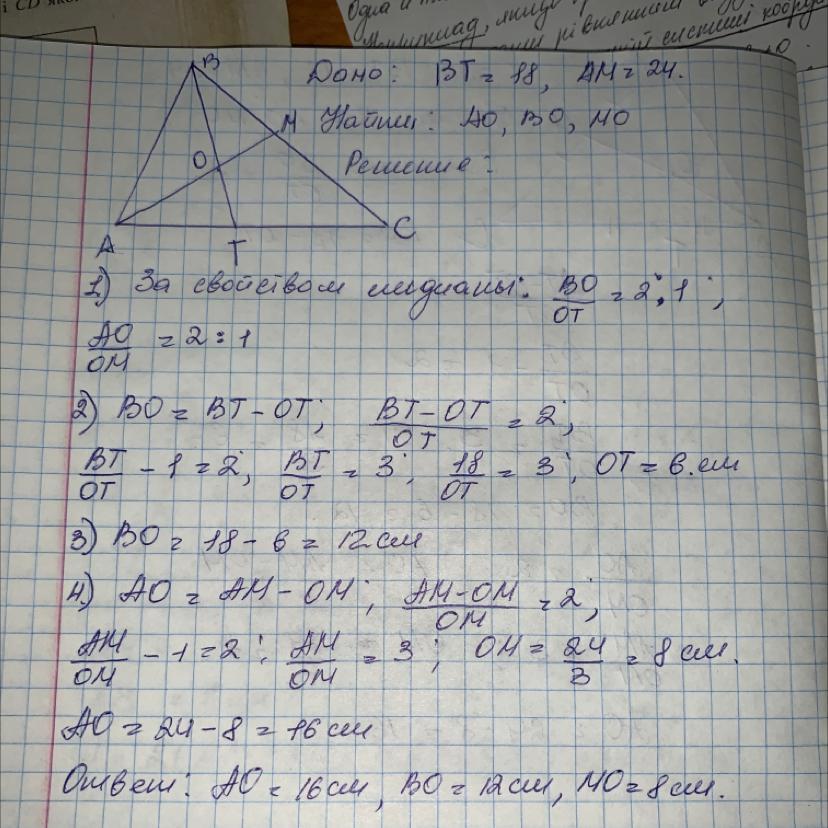 і CD
Одна и
рівняннями
системі коорд
B
Дано: BT = 18, AM = 24.
M
Найти: AO, BO, MO
O
Решение:
A
T
C
1) За свойством медианы: BO/OT = 2:1;
AO/OM = 2:1
2) BO = BT - OT; BT-OT/OT = 2;
BT/OT - 1 = 2; BT/OT = 3; 18/OT = 3; OT = 6.см
3) BO = 18 - 6 = 12 см
4.) AO = AM - OM; AM-OM/OM = 2;
AM/OM - 1 = 2; AM/OM = 3; OM = 24/3 = 8 см.
AO = 24 - 8 = 16 см
Ответ: AO = 16 см, BO = 12 см, MO = 8 см.